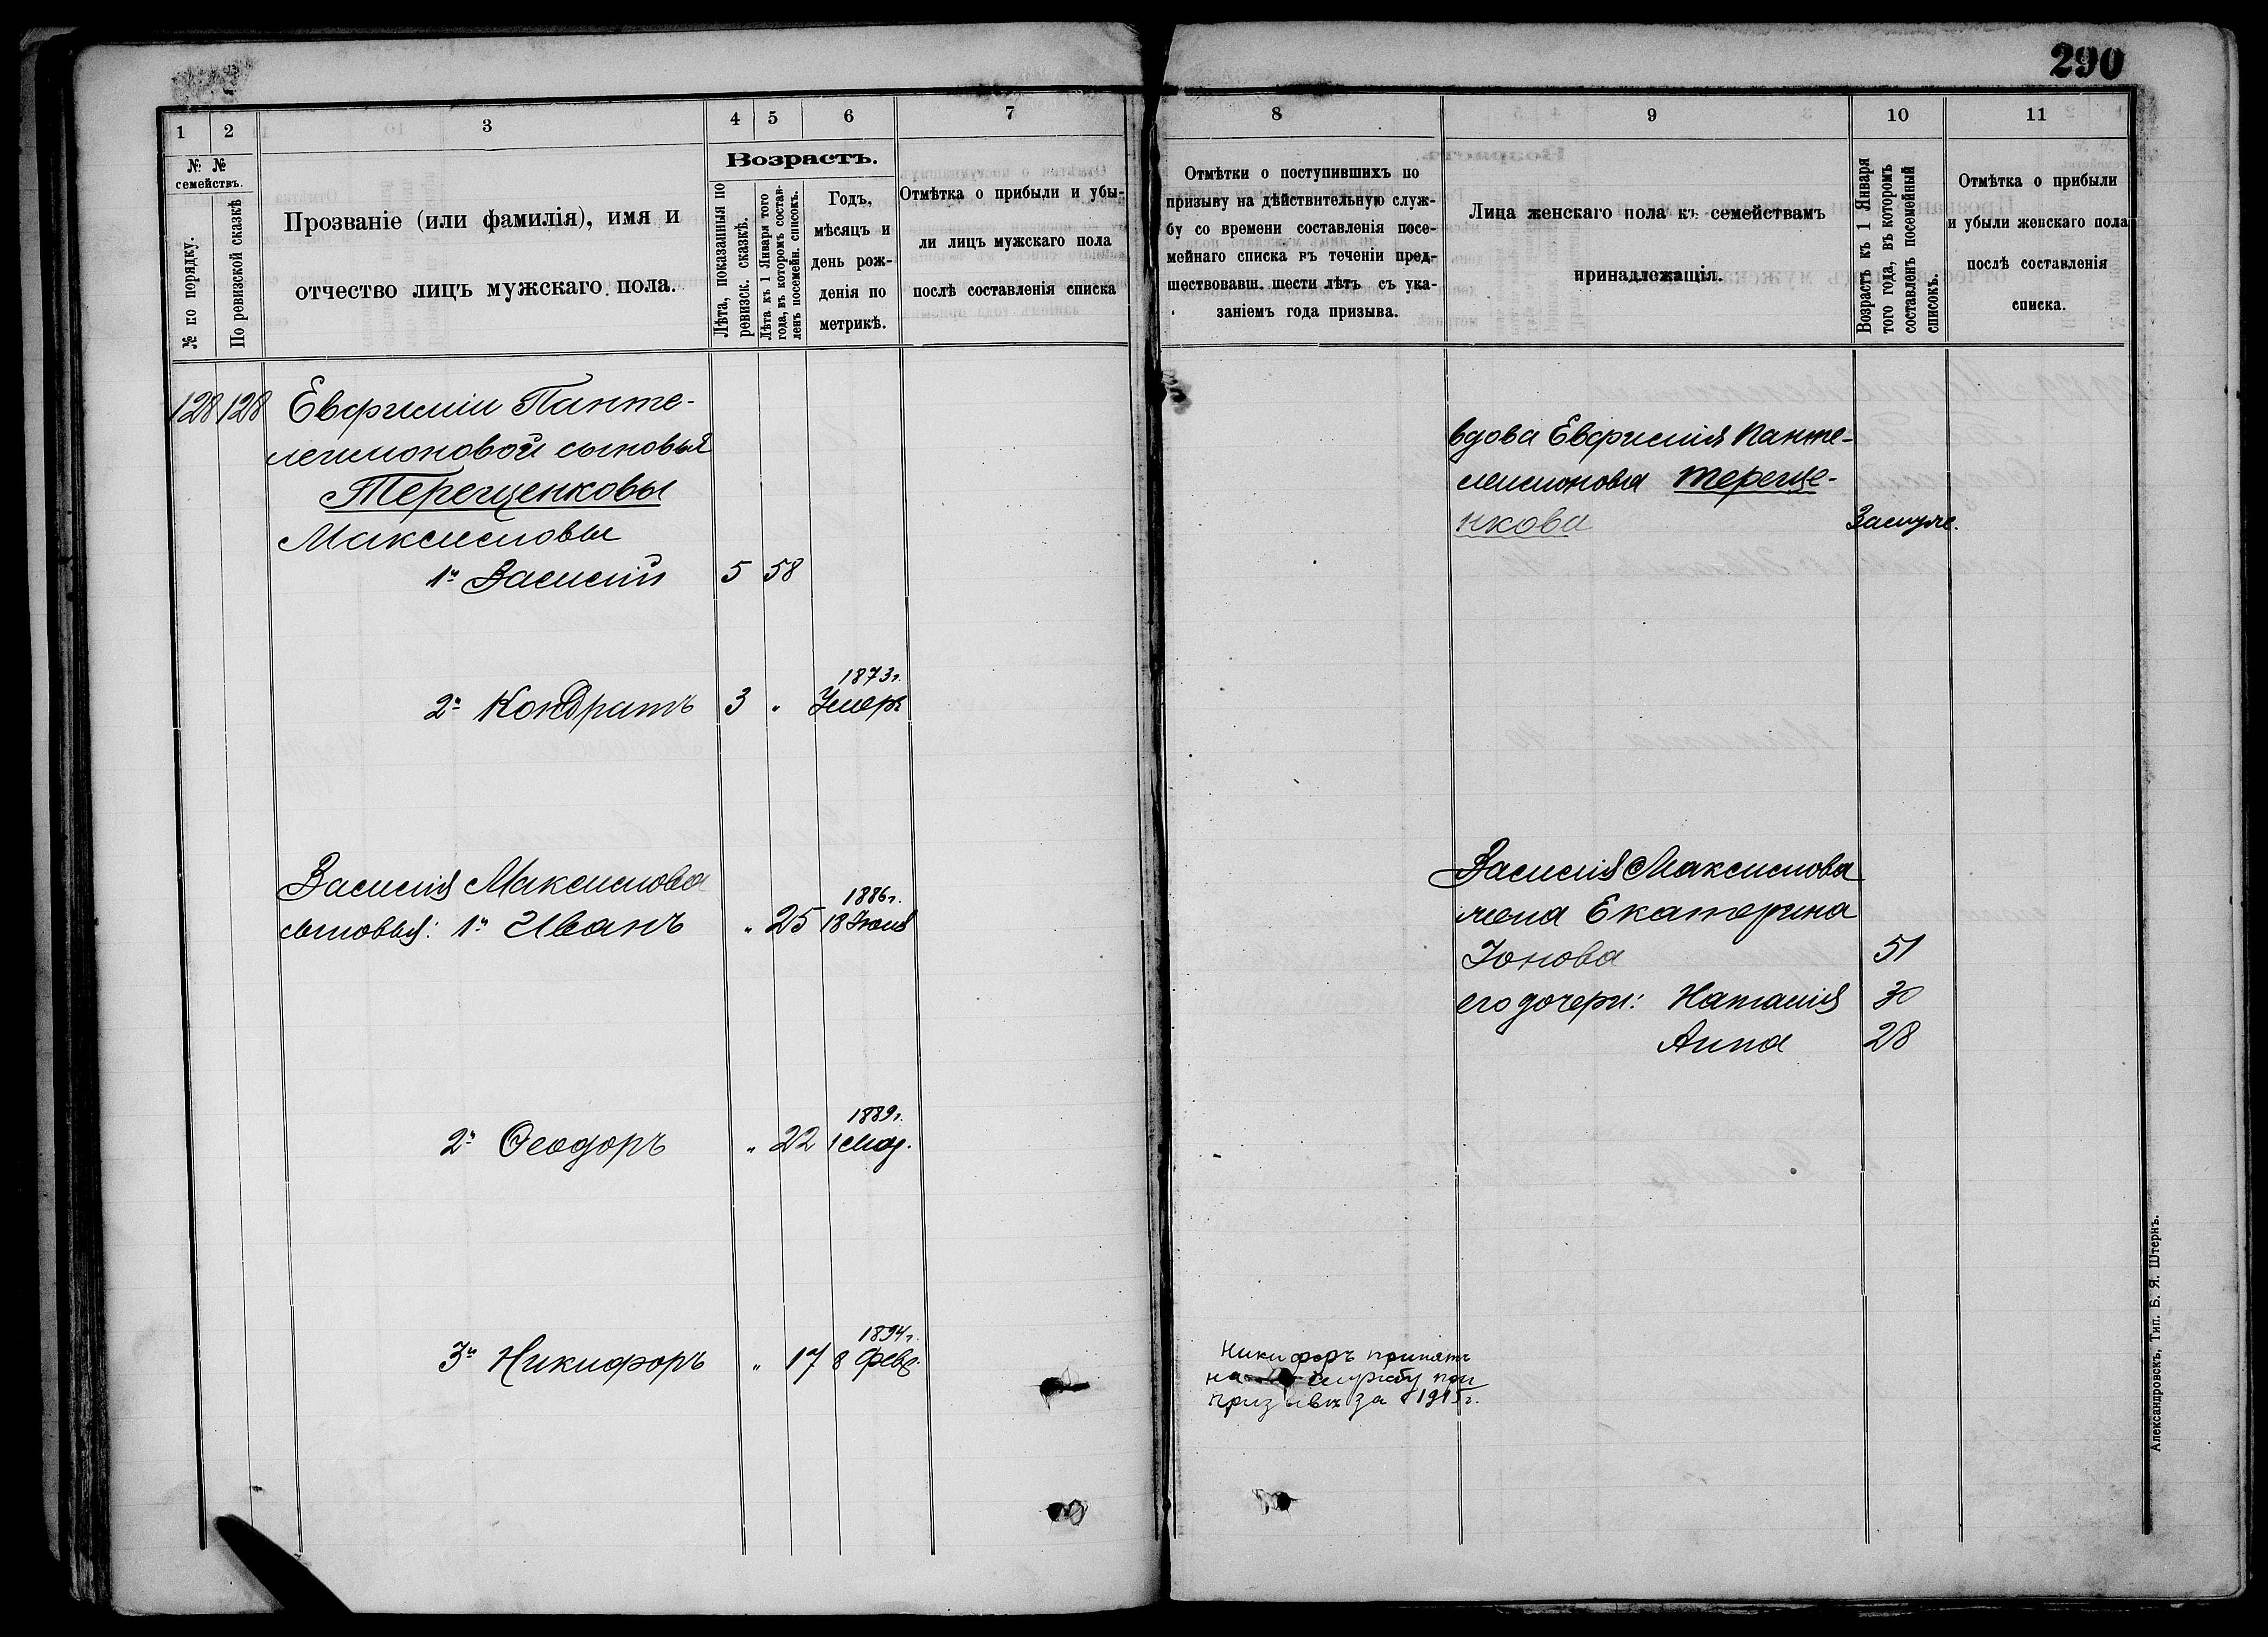 290
1
2
3
4
5
6
7
№ №
семействъ.
№ по порядку.
По ревизской сказкѣ
Прозваніе (или фамилія), имя и
отчество лицъ мужскаго пола.
Возрастъ.
Лѣта, показанныя по
ревизск. сказкѣ.
Лѣта къ 1 Января того
года, въ которомъ состав-
ленъ посемейн. списокъ.
Годъ,
мѣсяцъ и
день рож-
денія по
метрикѣ.
Отмѣтка о прибыли и убы-
ли лицъ мужскаго пола
послѣ составленія списка
128 128 Евфиміи Панте-
леимоновой сыновья
Терещенковы
Максимовы
1й Василій 5 58
1873г.
2й Кондратъ 3 " Умеръ
Василія Максимова
1886г.
сыновья: 1й Иванъ " 25 18 Іюня
1889г.
2й Ѳеодоръ " 22 1 Мая.
1894г.
3й Никифоръ " 17 8 Февр.
8
9
10
11
Отмѣтки о поступившихъ по
призыву на дѣйствительную служ-
бу со времени составленія посе-
мейнаго списка въ теченіи пред-
шествовавш. шести лѣтъ съ ука-
заніемъ года призыва.
Лица женскаго пола къ семействамъ
принадлежащія.
Возрастъ къ 1 Января
того года, въ которомъ
составленъ посемейный
списокъ.
Отмѣтка о прибыли
и убыли женскаго пола
послѣ составленія
списка.
вдова Евфимія Панте-
леимонова Тереще-
нкова Замуже.
Василія Максимова
жена Екатерина
Іонова 51
его дочери: Наталія 30
Анна 28
Никифоръ принятъ
на службу при
призывѣ за 1915г.
Александровскъ, Тип. Б. Я. Штернъ.